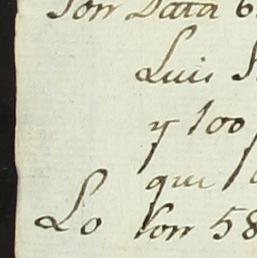 Son Data 6
Luis
y 100
que
Lo son 58